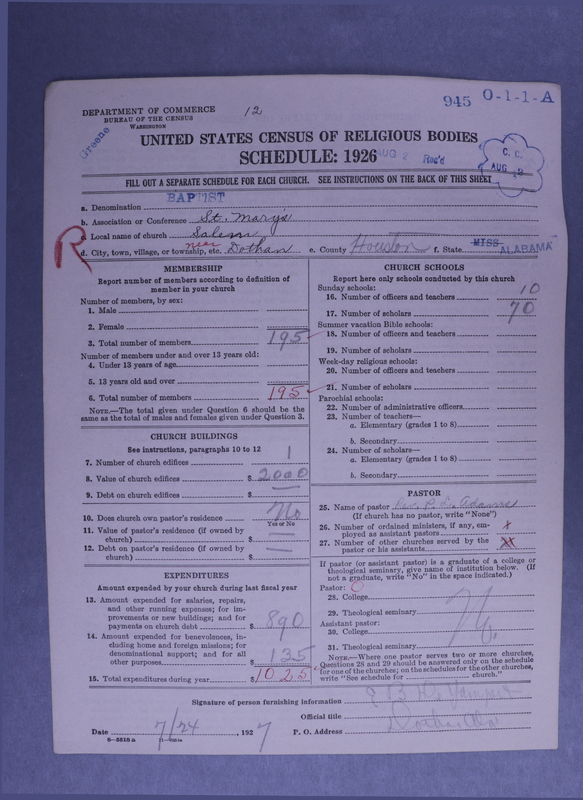 945 O-1-1-A
DEPARTMENT OF COMMERCE
BUREAU OF THE CENSUS
WASHINGTON
12
Greene
UNITED STATES CENSUS OF RELIGIOUS BODIES
SCHEDULE: 1926
AUG 2 Rec'd
C. C.
AUG 12
FILL OUT A SEPARATE SCHEDULE FOR EACH CHURCH. SEE INSTRUCTIONS ON THE BACK OF THIS SHEET
a. Denomination BAPTIST
b. Association or Conference St. Mary's
c. Local name of church Salem
R
d. City, town, village, or township, etc. near Dothan e. County Houston f. State MISS. ALABAMA
MEMBERSHIP
Report number of members according to definition of
member in your church
Number of members, by sex:
1. Male
2. Female
3. Total number of members 195
Number of members under and over 13 years old:
4. Under 13 years of age
5. 13 years old and over
6. Total number of members 195
NOTE.—The total given under Question 6 should be the
same as the total of males and females given under Question 3.
CHURCH BUILDINGS
See instructions, paragraphs 10 to 12
7. Number of church edifices 1
8. Value of church edifices $ 2000
9. Debt on church edifices $
10. Does church own pastor's residence No
Yes or No
11. Value of pastor's residence (if owned by
church) $
12. Debt on pastor's residence (if owned by
church) $
EXPENDITURES
Amount expended by your church during last fiscal year
13. Amount expended for salaries, repairs,
and other running expenses; for im-
provements or new buildings; and for
payments on church debt $ 890
14. Amount expended for benevolences, in-
cluding home and foreign missions; for
denominational support; and for all
other purposes $ 135
15. Total expenditures during year $ 1025
CHURCH SCHOOLS
Report here only schools conducted by this church
Sunday schools:
16. Number of officers and teachers 10
17. Number of scholars 70
Summer vacation Bible schools:
18. Number of officers and teachers
19. Number of scholars
Week-day religious schools:
20. Number of officers and teachers
21. Number of scholars
Parochial schools:
22. Number of administrative officers
23. Number of teachers—
a. Elementary (grades 1 to 8)
b. Secondary
24. Number of scholars—
a. Elementary (grades 1 to 8)
b. Secondary
PASTOR
25. Name of pastor Rev. Adams
(If church has no pastor, write "None")
26. Number of ordained ministers, if any, em-
ployed as assistant pastors x
27. Number of other churches served by the
pastor or his assistants
If pastor (or assistant pastor) is a graduate of a college or
theological seminary, give name of institution below. (If
not a graduate, write "No" in the space indicated.)
Pastor: O
28. College
29. Theological seminary
Assistant pastor:
30. College
31. Theological seminary
NOTE.—Where one pastor serves two or more churches,
Questions 28 and 29 should be answered only on the schedule
for one of the churches; on the schedules for the other churches,
write "See schedule for church."
Signature of person furnishing information
Official title
Date 7/24, 1927 P. O. Address Dothan Ala